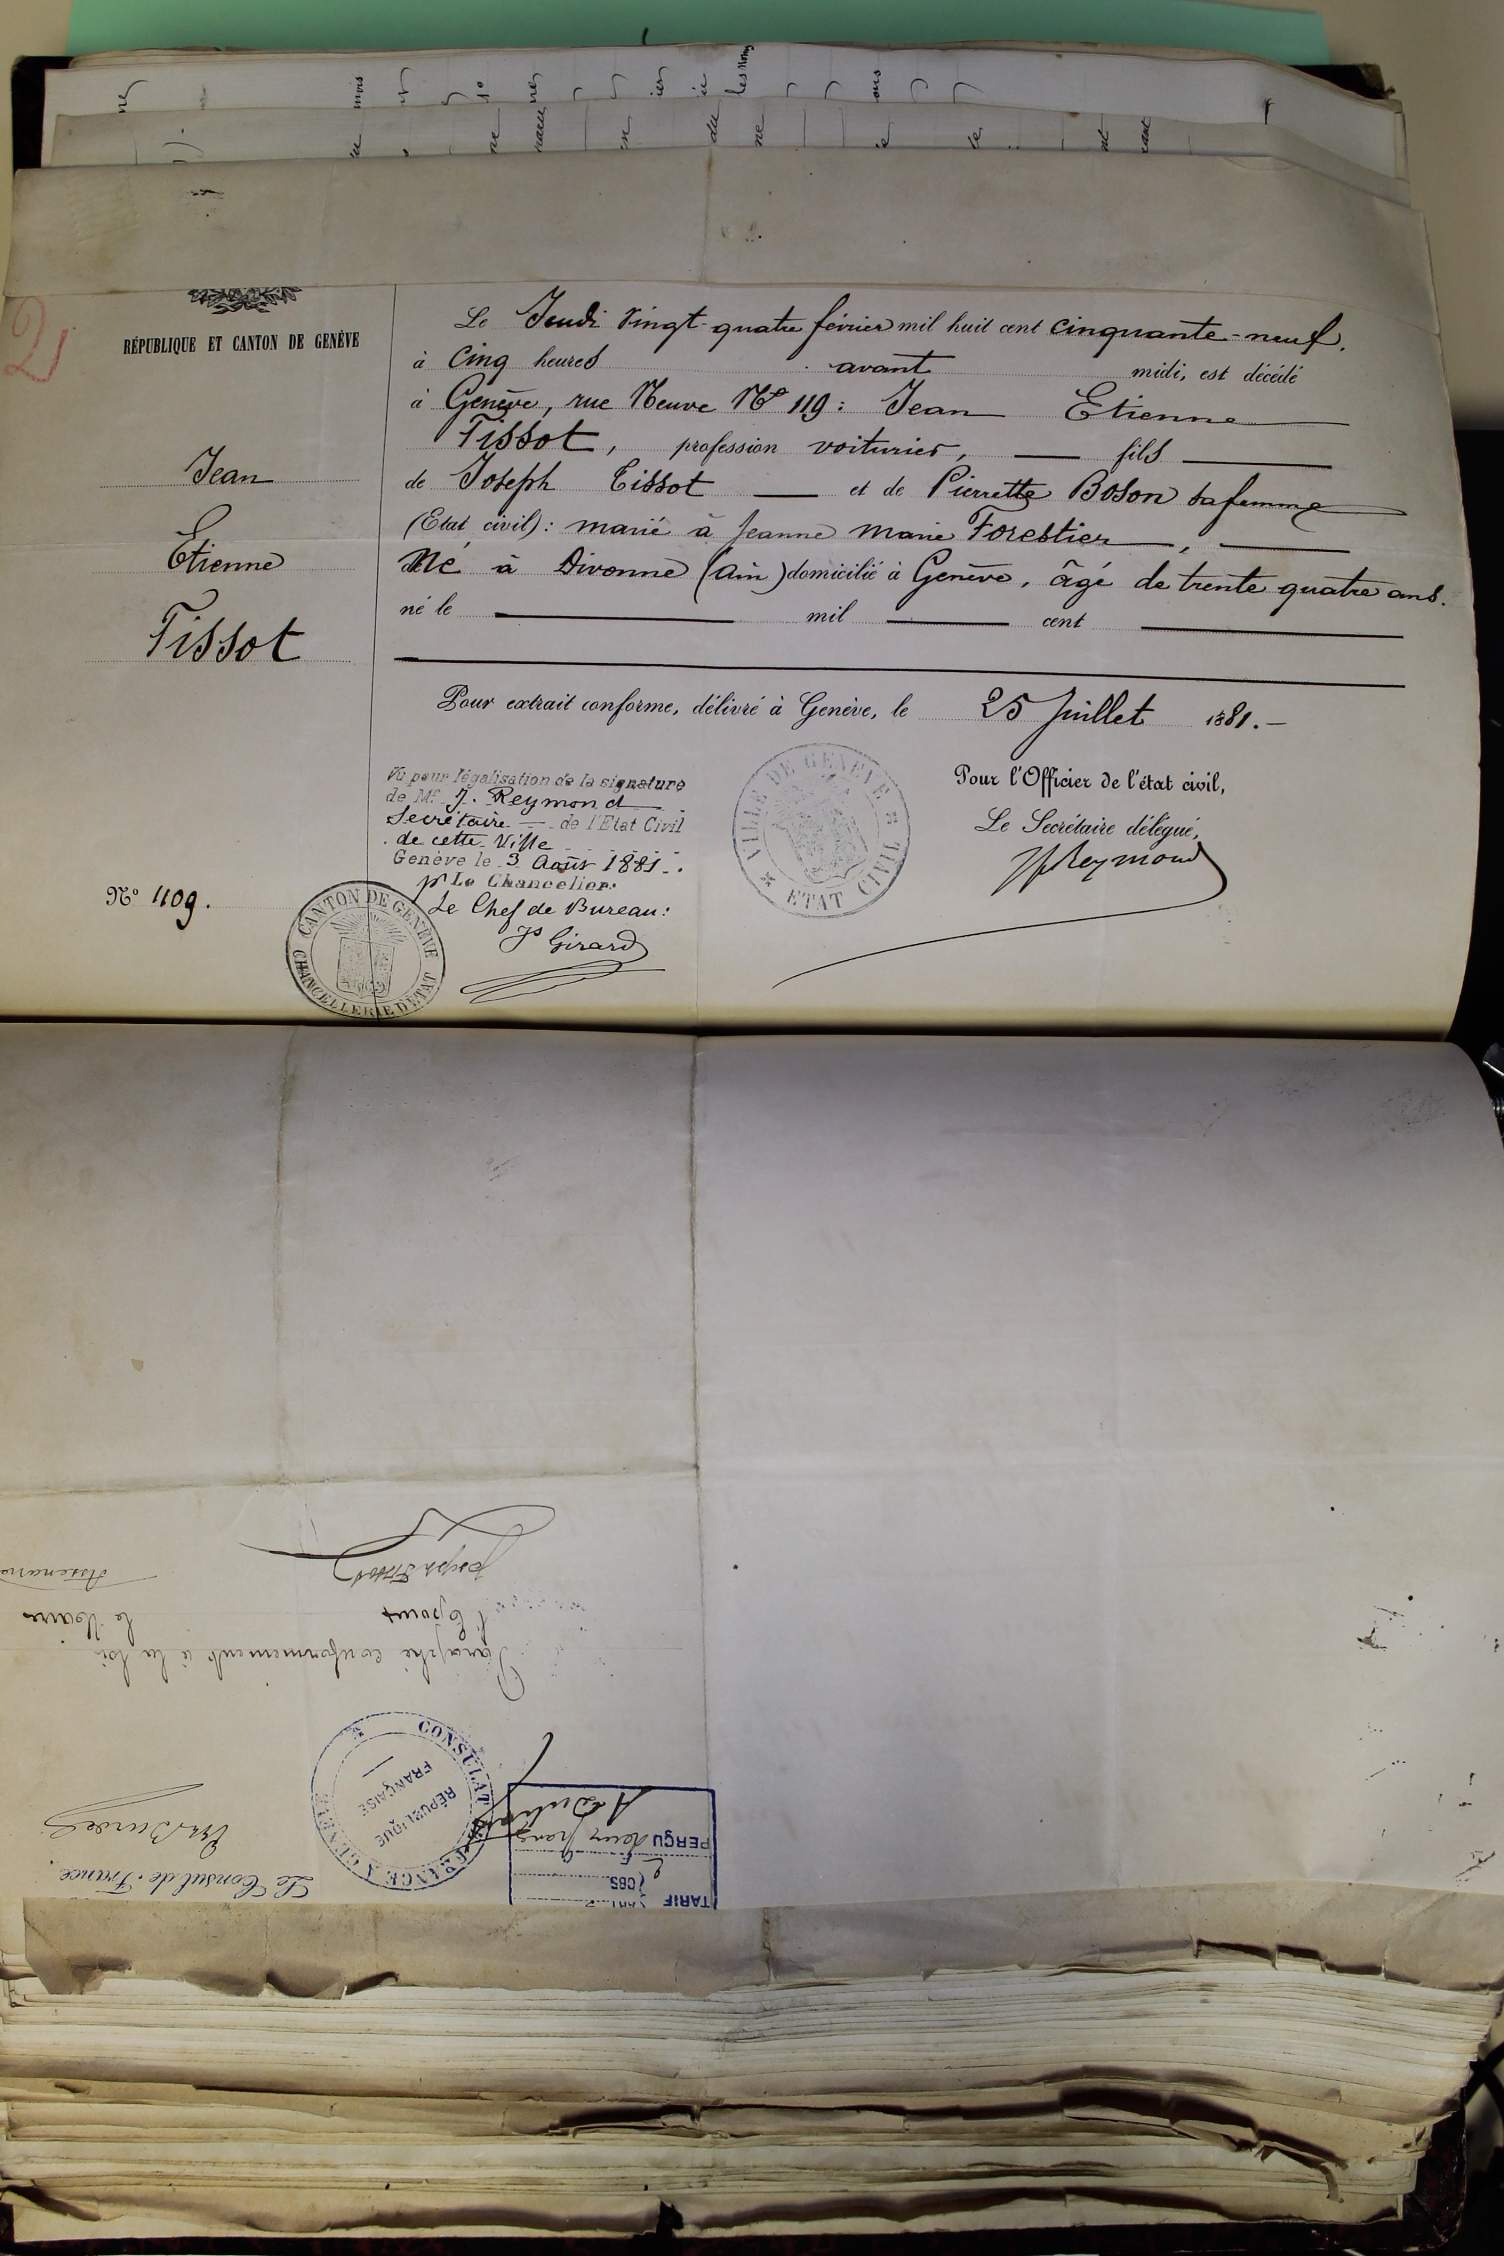 21
RÉPUBLIQUE ET CANTON DE GENÈVE
Jean
Etienne
Tissot
N° 1109.
Le Jeudi vingt-quatre février mil huit cent cinquante-neuf.
à cinq heures avant midi, est décédé
à Genève, rue Neuve N° 119: Jean Etienne
Tissot, profession voiturier, fils
de Joseph Tissot et de Pierrette Boson sa femme
(Etat civil): marié à Jeanne Marie Forestier,
Né à Divonne (Ain) domicilié à Genève, âgé de trente quatre ans.
né le mil cent
Pour extrait conforme, délivré à Genève, le 25 Juillet 1881.-
Vu pour légalisation de la signature
de Mr J. Reymond
Secrétaire de l'Etat Civil
de cette Ville
Genève le 3 Août 1881.
pr Le Chancelier:
Le Chef de Bureau:
Js Girard
CANTON DE GENÈVE
CHANCELLERIE D'ÉTAT
VILLE DE GENÈVE
ETAT CIVIL
Pour l'Officier de l'état civil,
Le Secrétaire délégué,
Reymond
TARIF
CBS
PERÇU deux francs
Le Consul de France.
CONSULAT DE FRANCE A GENÈVE
RÉPUBLIQUE
FRANÇAISE
Paraphé conformément à la loi
l'Epoux le Maire
Joseph Tissot